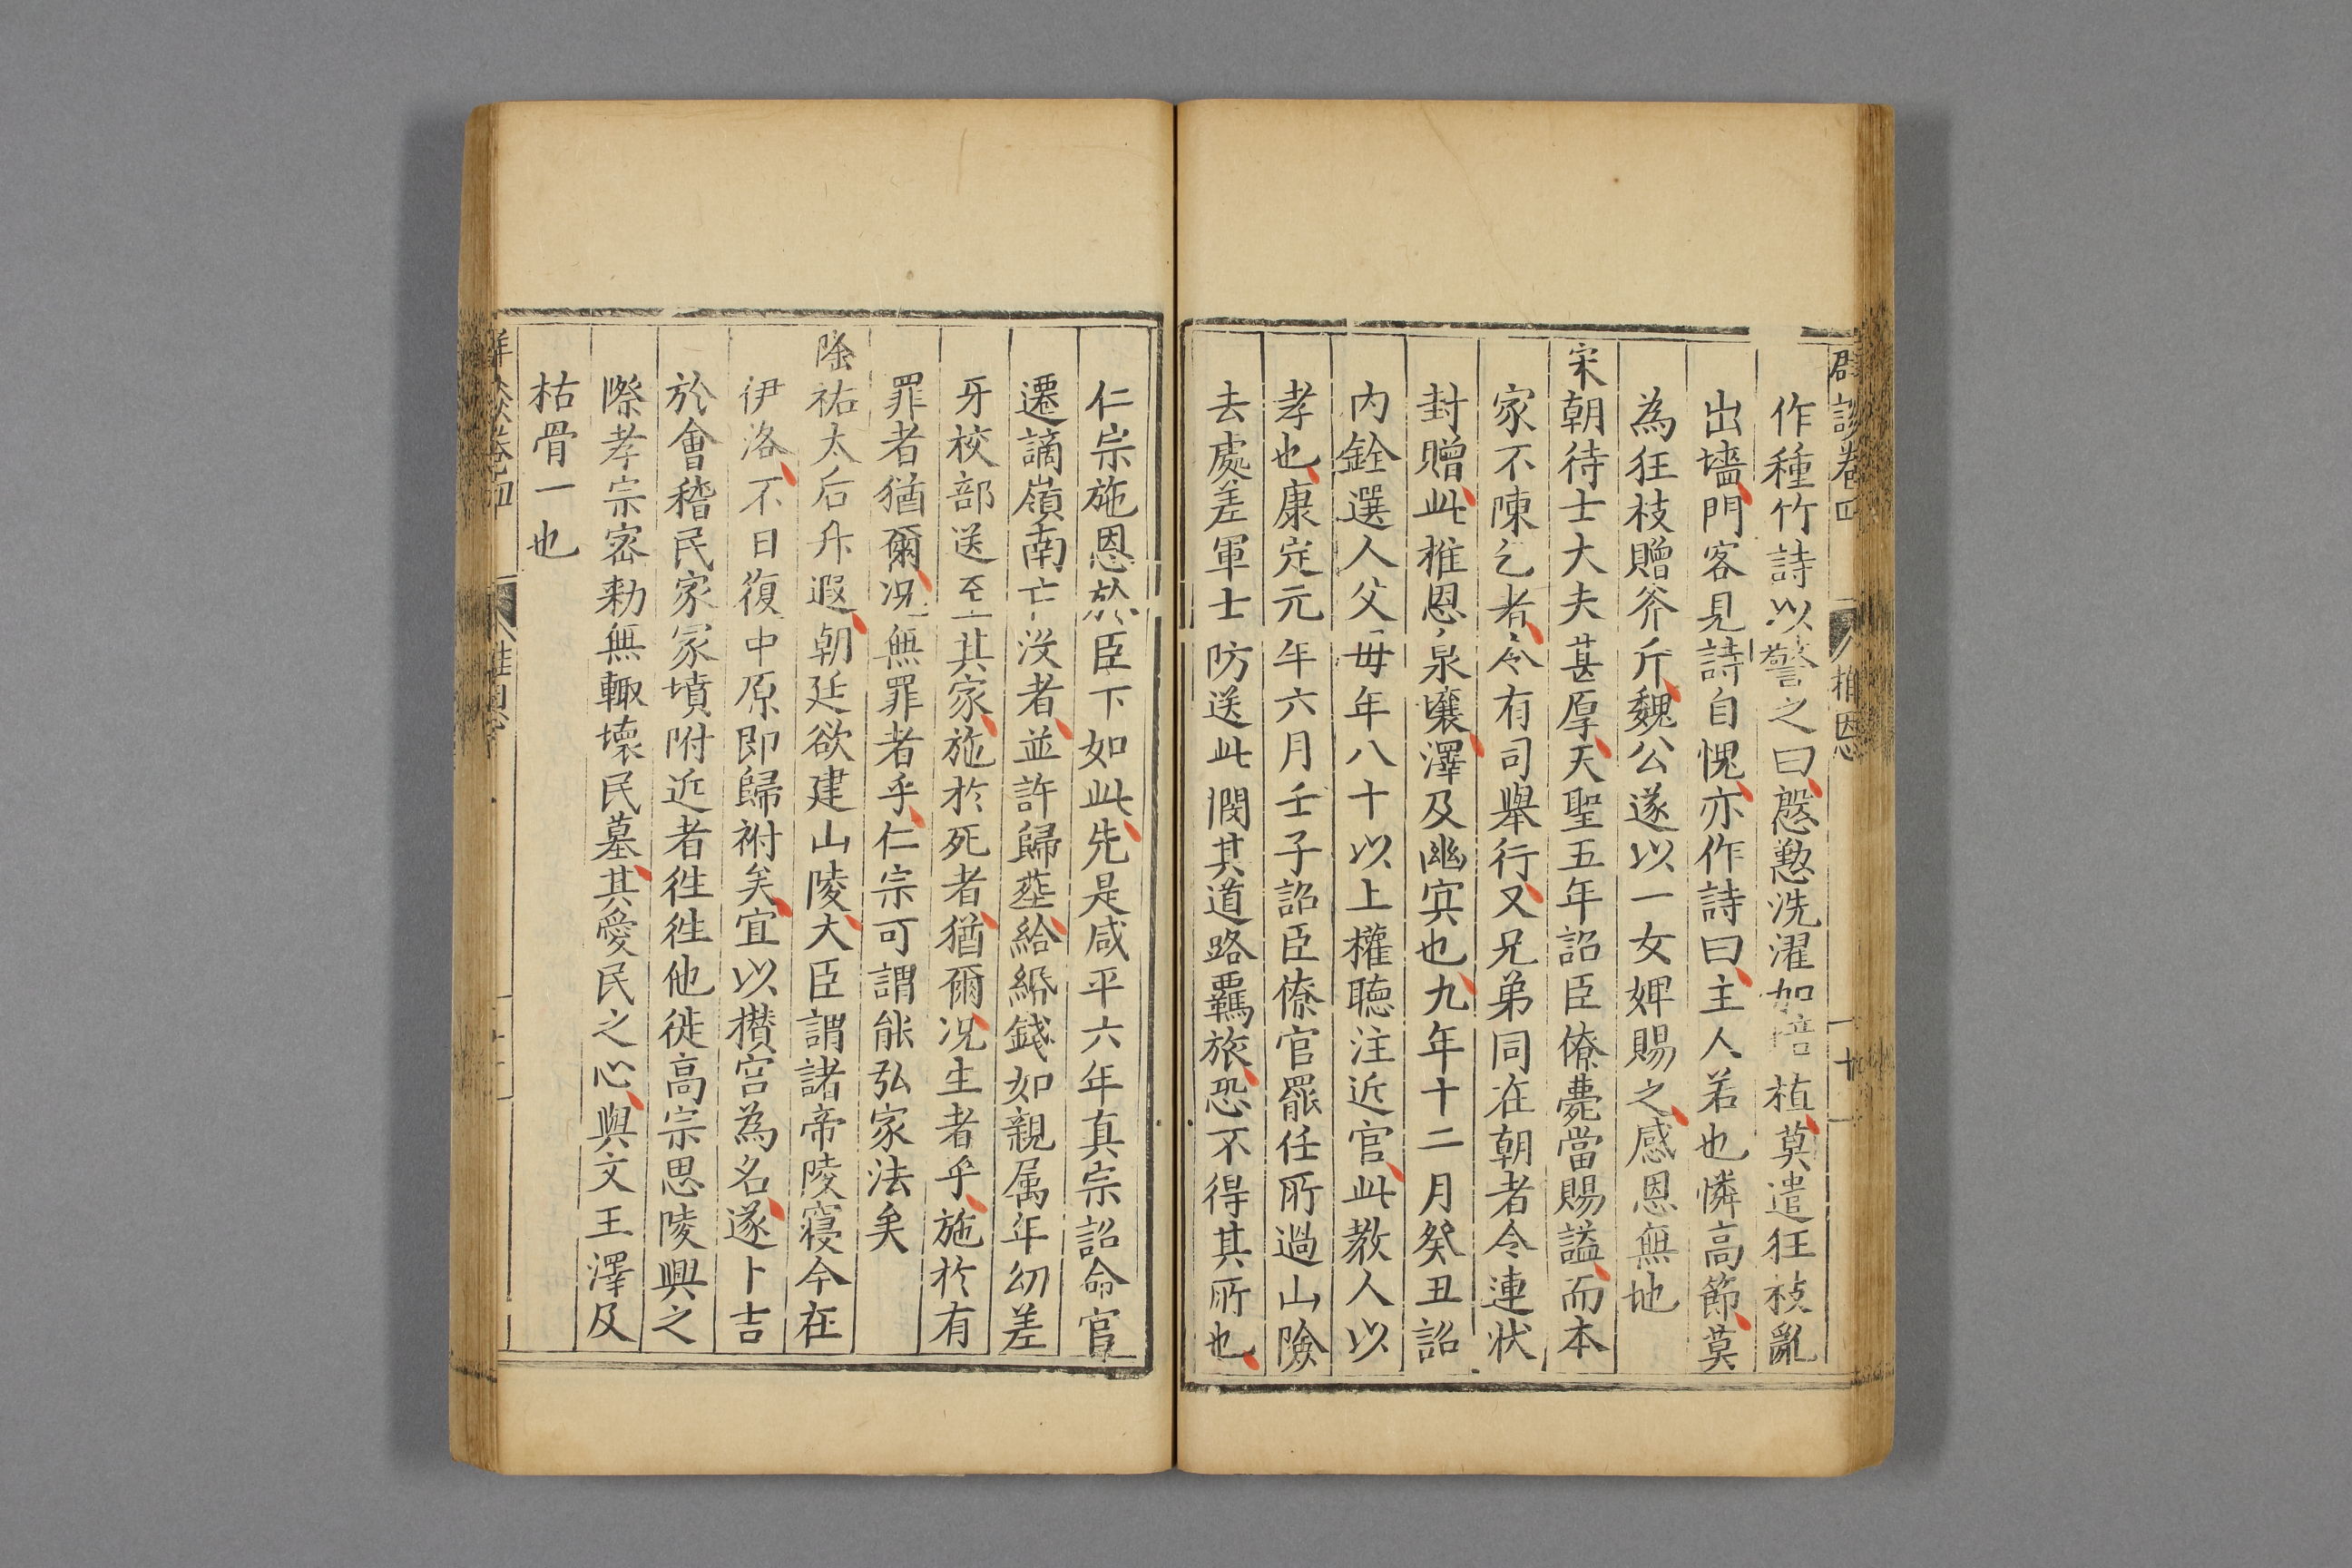 群談卷四 推恩 十
作種竹詩以警之曰慇懃洗濯加培植莫遣狂枝亂
出墻門客見詩自愧亦作詩曰主人若也憐高節莫
為狂枝贈斧斤魏公遂以一女婢賜之感恩無地
宋朝待士大夫甚厚天聖五年詔臣僚薨當賜謚而本
家不陳乞者令有司舉行又兄弟同在朝者令連狀
封贈此推恩泉壤澤及幽冥也九年十二月癸丑詔
内銓選人父母年八十以上權聴注近官此教人以
孝也康定元年六月壬子詔臣僚官罷任所過山險
去處差軍士防送此閔其道路羈旅恐不得其所也
仁宗施恩於臣下如此先是咸平六年真宗詔命官
遷謫嶺南亡没者並許歸葬給緡錢如親属年幼差
牙校部送至其家施於死者猶爾况生者乎施於有
罪者猶爾况無罪者乎仁宗可謂能弘家法矣
隆祐太后升遐朝廷欲建山陵大臣謂諸帝陵寝今在
伊洛不日復中原即歸祔矣宜以攅宫為名遂卜吉
於會稽民家冢墳附近者徃徃他徙高宗思陵興之
際孝宗宻勅無輙壞民墓其愛民之心與文王澤及
枯骨一也